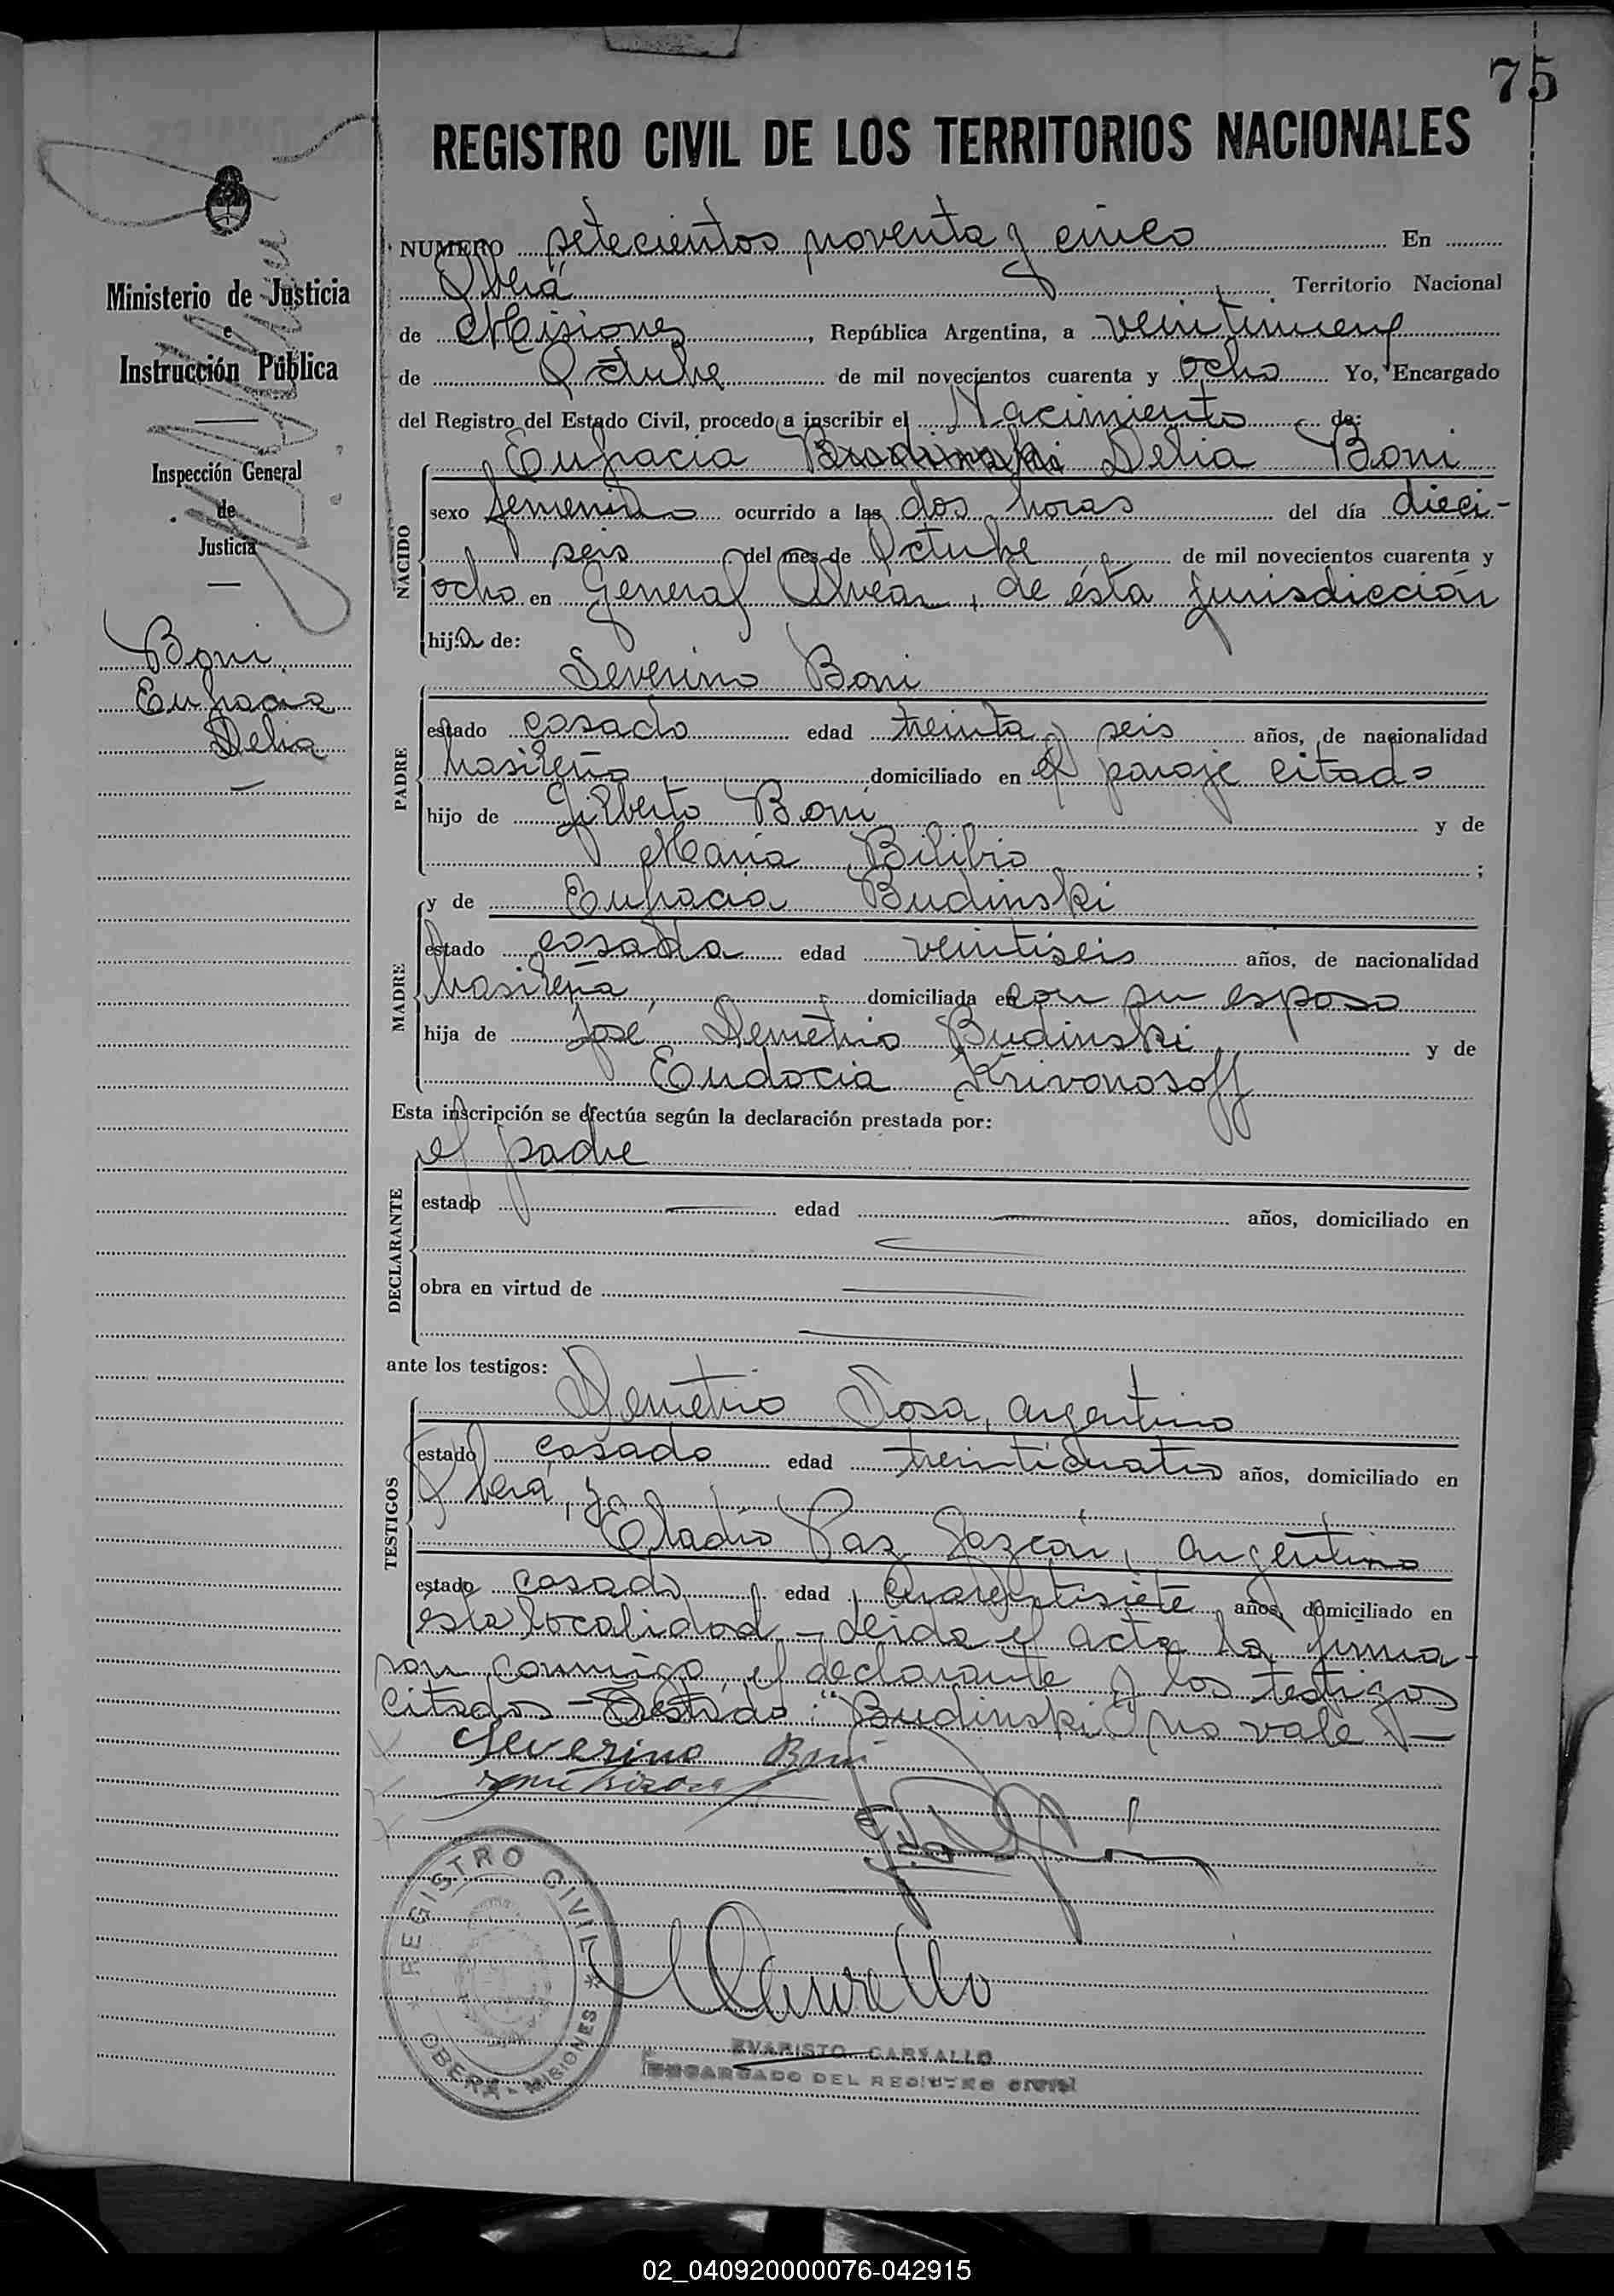 75
REGISTRO CIVIL DE LOS TERRITORIOS NACIONALES
Ministerio de Justicia
e
Instrucción Pública
Inspección General
de
Justicia
Boni
Eufracia
Delia
NUMERO setecientos noventa y cinco En
Oberá Territorio Nacional
de Misiones, República Argentina, a veintinueve
de Octubre de mil novecientos cuarenta y ocho Yo, Encargado
del Registro del Estado Civil, procedo a inscribir el Nacimiento de:
NACIDO
Eufracia Delia Boni
sexo femenino ocurrido a las dos horas del día dieci-
seis del mes de Octubre de mil novecientos cuarenta y
ocho en General Alvear, de ésta jurisdicción
hija de:
PADRE
Severino Boni
estado casado edad treinta y seis años, de nacionalidad
brasileña domiciliado en el paraje citado
hijo de Gilberto Boni y de
María Bilibio ;
MADRE
y de Eufracia Budinski
estado casada edad veintiseis años, de nacionalidad
brasileña, domiciliada en con su esposo
hija de José Demetrio Budinski y de
Eudocia Krivonosoff
Esta inscripción se efectúa según la declaración prestada por:
DECLARANTE
el padre
estado edad años, domiciliado en
obra en virtud de
ante los testigos:
TESTIGOS
Demetrio Sosa, argentino
estado casado edad treinticuatro años, domiciliado en
Oberá, y
Eladio Paz, argentino
estado casado edad cuarentisiete años, domiciliado en
esta localidad - Leida el acta la firma-
ron conmigo, el declarante y los testigos
citados - Testado: "Budinski" no vale -
Severino Boni
REGISTRO CIVIL
OBERÁ - MISIONES
EVARISTO CARVALLO
ENCARGADO DEL REGISTRO CIVIL
02_040920000076-042915